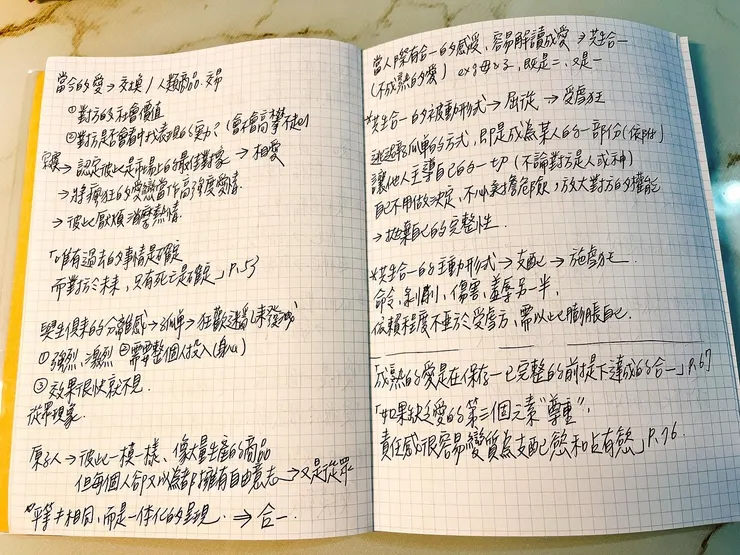 當今的愛→交換/人類商品.交易
①對方的社會價值
②對方是否會看中我表現的實力?(會不會高攀不起)
→認定彼此是市場上的最佳對象→相愛
→將瘋狂的愛戀當作高強度愛情
→彼此厭煩消磨熱情.
「唯有過去的事情是確定
而對於未來,只有死亡是確定」p.53
與生俱來的分離感→孤單→狂歡迷
①強烈.激烈 ②需要整個人投入(身心)
③效果很快就不見.
從眾現象.
原子人→彼此一模一樣、像大量生產的商品
但每個人卻又以為都擁有自由意志→又是從眾
平等≠相同,而是一体化的呈現.⇒合一.
當人際有合一的感受、容易解讀成愛→共生合一
(不成熟的愛) ex母與子,既是二、又是一
*共生合一的被動形式→屈從→受虐狂
逃避孤單的方式,即是成為某人的一部份(依附)
讓他人主導自己的一切(不論對方是人或神)
自己不用做決定、不必承擔危險,放大對方的權能
→拋棄自己的完整性.
*共生合一的主動形式→支配→施虐狂
命令、剝削、傷害、羞辱另一半.
依賴程度不亞於受虐方,需以此膨脹自己.
「成熟的愛是在保存一已完整的前提下達成的合一」p.67
「如果缺乏愛的第三個元素"尊重",
責任感很容易變質為支配慾和占有慾」p.76